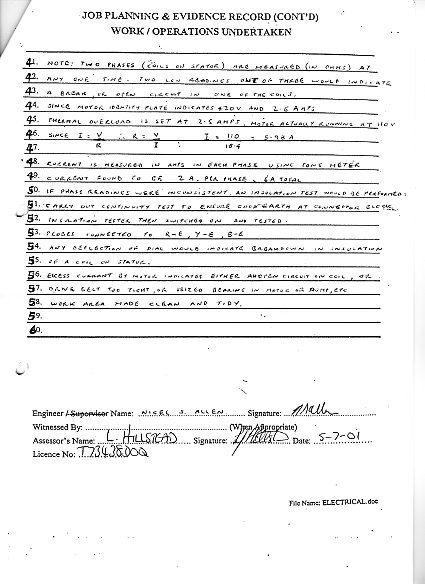 JOB PLANNING & EVIDENCE RECORD (CONT'D)
WORK / OPERATIONS UNDERTAKEN
41. NOTE: TWO PHASES (COILS ON STATOR) ARE MEASURED (IN OHMS) AT
42. ANY ONE TIME. TWO LOW READINGS OUT OF THREE WOULD INDICATE
43. A BREAK OR OPEN CIRCUIT IN ONE OF THE COILS.
44. SINCE MOTOR IDENTITY PLATE INDICATES 420V AND 2.6 AMPS
45. THERMAL OVERLOAD IS SET AT 2.6 AMPS. MOTOR ACTUALLY RUNNING AT 110V
46. SINCE I = V ∴ R = V I = 110 = 5.98A
47. R I 18.4
48. CURRENT IS MEASURED IN AMPS IN EACH PHASE USING TONG METER
49. CURRENT FOUND TO BE 2A. PER PHASE, 6A TOTAL
50. IF PHASE READINGS WERE INCONSISTENT, AN INSULATION TEST WOULD BE PERFORMED.
51. CARRY OUT CONTINUITY TEST TO ENSURE GOOD EARTH AT
52. INSULATION TESTER THEN SWITCHED ON AND TESTED.
53. PROBES CONNECTED TO R-E, Y-E, B-E
54. ANY DEFLECTION OF DIAL WOULD INDICATE BREAKDOWN IN INSULATION
55. OF A COIL ON STATOR.
56. EXCESS CURRENT BY MOTOR INDICATES EITHER AN OPEN CIRCUIT ON COIL, OR
57. DRIVE BELT TOO TIGHT, OR SEIZED BEARING IN MOTOR OR PUMP, ETC
58. WORK AREA MADE CLEAN AND TIDY.
59.
60.
Engineer / Supervisor Name: NIGEL J. ALLEN Signature:
Witnessed By: (When Appropriate)
Assessor's Name: L. HILLSTEAD Signature: Date: 5-7-01
Licence No:
File Name: ELECTRICAL.doc